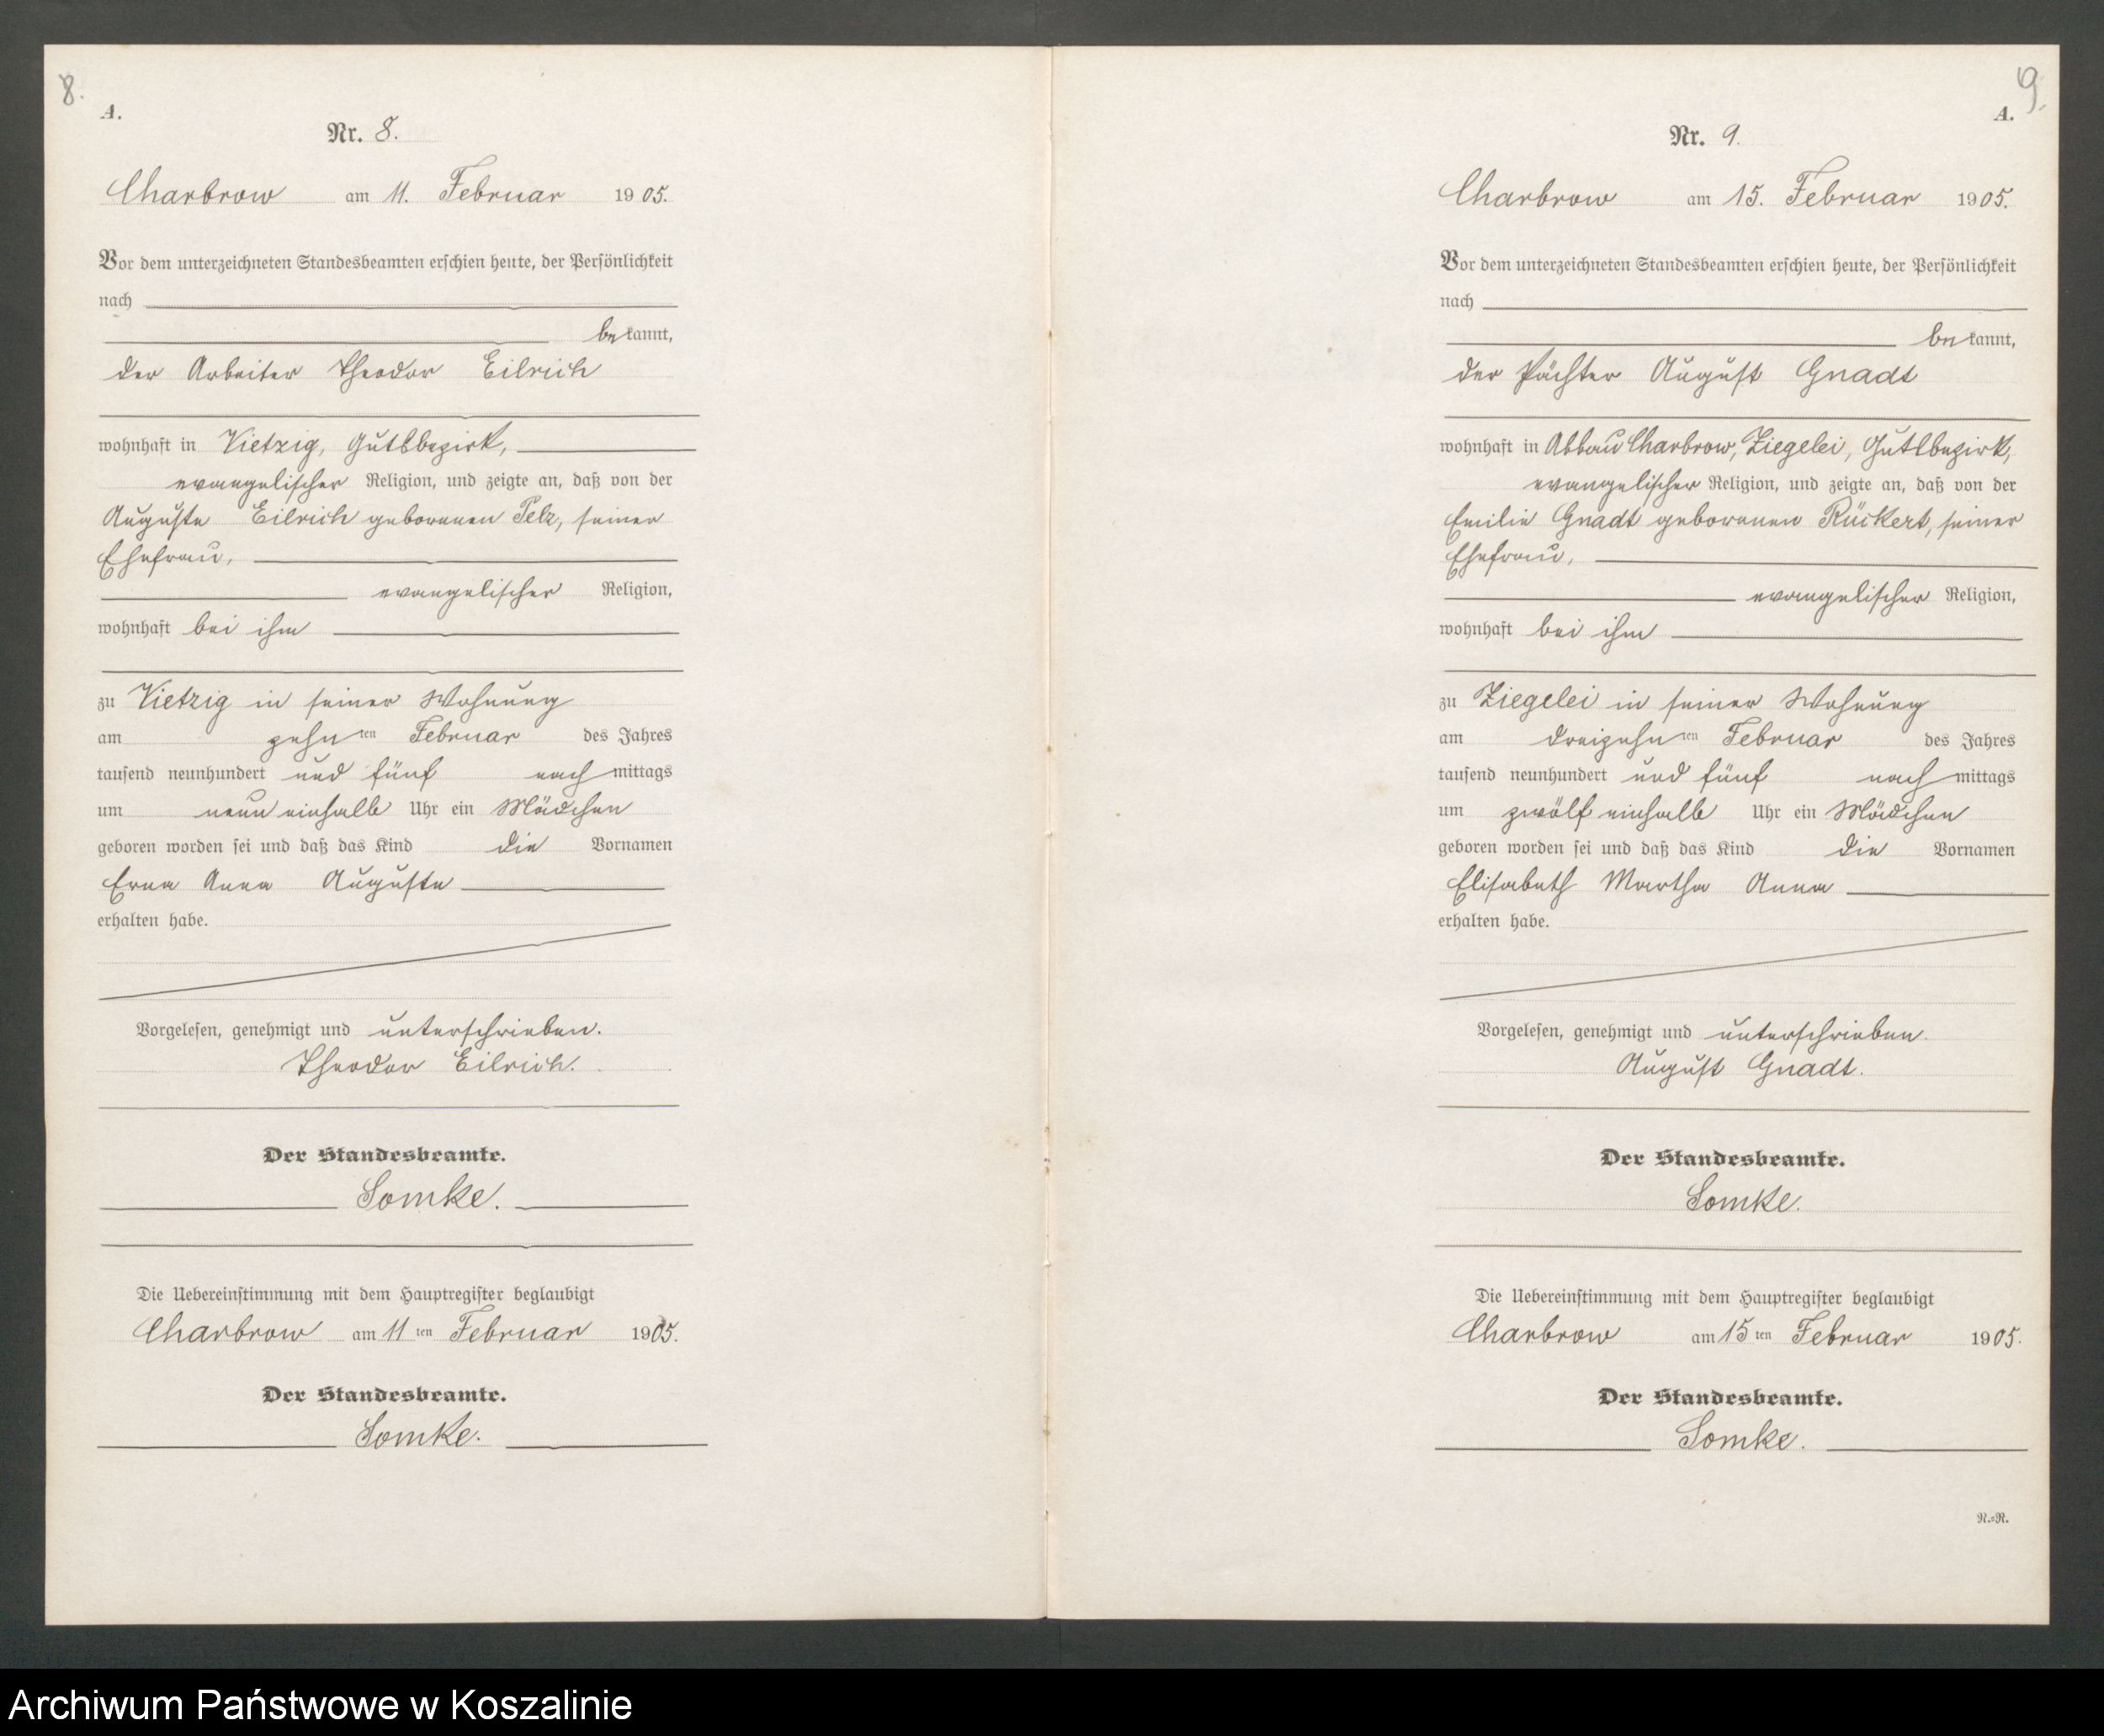 8.
A.
Nr. 8.
Charbrow am 11. Februar 1905.
Vor dem unterzeichneten Standesbeamten erschien heute, der Persönlichkeit
nach
bekannt,
der Arbeiter Theodor Eilrich
wohnhaft in Vietzig, Gutsbezirk,
evangelischer Religion, und zeigte an, daß von der
Auguste Eilrich geborenen Pelz, seiner
Ehefrau,
evangelischer Religion,
wohnhaft bei ihm
zu Vietzig in seiner Wohnung
am zehnten Februar des Jahres
tausend neunhundert und fünf nachmittags
um neun einhalb Uhr ein Mädchen
geboren worden sei und daß das Kind die Vornamen
Erna Anna Auguste
erhalten habe.
Vorgelesen, genehmigt und unterschrieben.
Theodor Eilrich.
Der Standesbeamte.
Somke.
Die Uebereinstimmung mit dem Hauptregister beglaubigt
Charbrow am 11ten Februar 1905.
Der Standesbeamte.
Somke.
9.
A.
Nr. 9.
Charbrow am 15. Februar 1905.
Vor dem unterzeichneten Standesbeamten erschien heute, der Persönlichkeit
nach
bekannt,
der Pächter August Gnadt
wohnhaft in Abbau Charbrow, Ziegelei, Gutsbezirk,
evangelischer Religion, und zeigte an, daß von der
Emilie Gnadt geborenen Rückert, seiner
Ehefrau,
evangelischer Religion,
wohnhaft bei ihm
zu Ziegelei in seiner Wohnung
am dreizehnten Februar des Jahres
tausend neunhundert und fünf nachmittags
um zwölf einhalb Uhr ein Mädchen
geboren worden sei und daß das Kind die Vornamen
Elisabeth Martha Anna
erhalten habe.
Vorgelesen, genehmigt und unterschrieben.
August Gnadt.
Der Standesbeamte.
Somke.
Die Uebereinstimmung mit dem Hauptregister beglaubigt
Charbrow am 15ten Februar 1905.
Der Standesbeamte.
Somke.
N.=R.
Archiwum Państwowe w Koszalinie